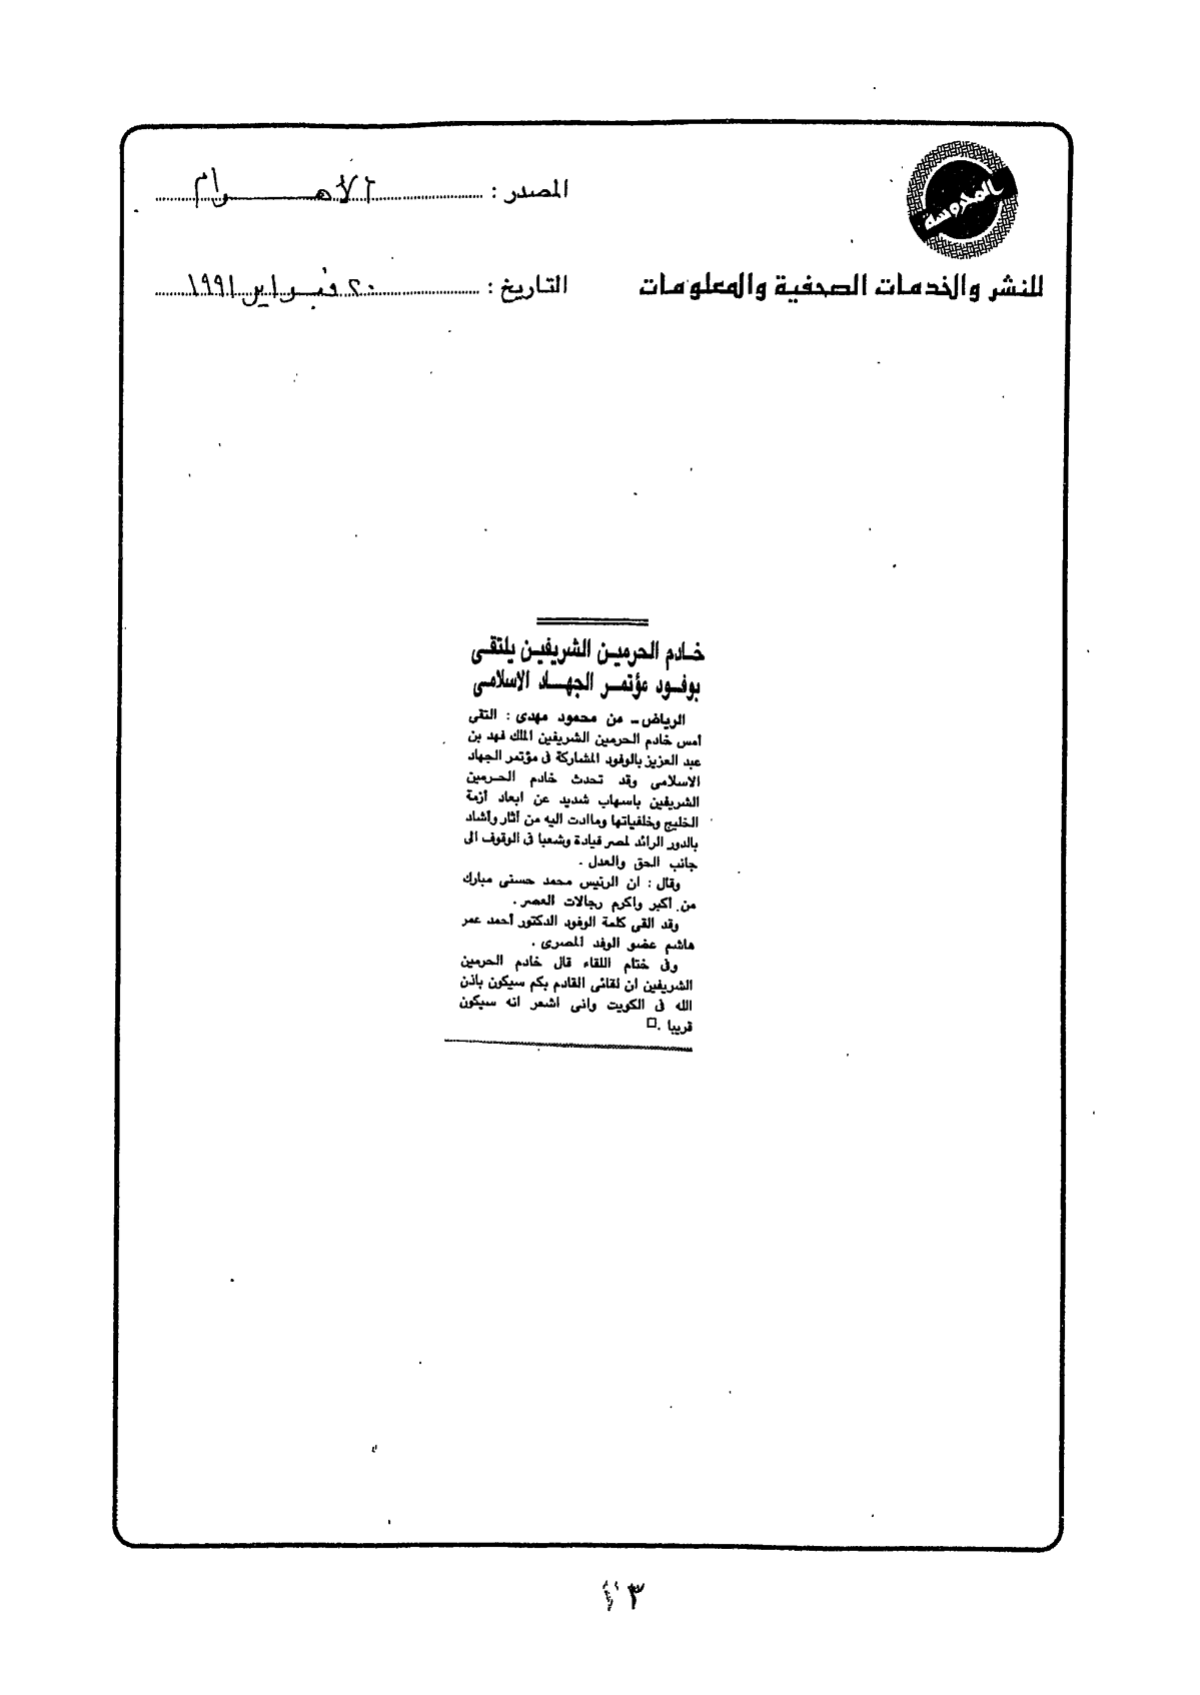 المحروسة
للنشر والخدمات الصحفية والمعلومات
المصدر : الاهـــرام
التاريخ : ٢٠ فبراير ١٩٩١
خـادم الحرميـن الشريفيـن يلتقـى
بوفـود مؤتمـر الجهـاد الإسلامى
الرياض ـ من محمود مهدى : التقى
أمس خادم الحرمين الشريفين الملك فهد بن
عبد العزيز بالوفود المشاركة فى مؤتمر الجهاد
الاسلامى وقد تحدث خادم الحرمين
الشريفين باسهاب شديد عن ابعاد أزمة
الخليج وخلفياتها وماادت اليه من آثار وأشاد
بالدور الرائد لمصر قيادة وشعبا فى الوقوف الى
جانب الحق والعدل .
وقال : ان الرئيس محمد حسنى مبارك
من أكبر واكرم رجالات العصر .
وقد القى كلمة الوفود الدكتور أحمد عمر
هاشم عضو الوفد المصرى .
وفى ختام اللقاء قال خادم الحرمين
الشريفين ان لقائى القادم بكم سيكون باذن
الله فى الكويت وانى اشعر انه سيكون
قريبا .□